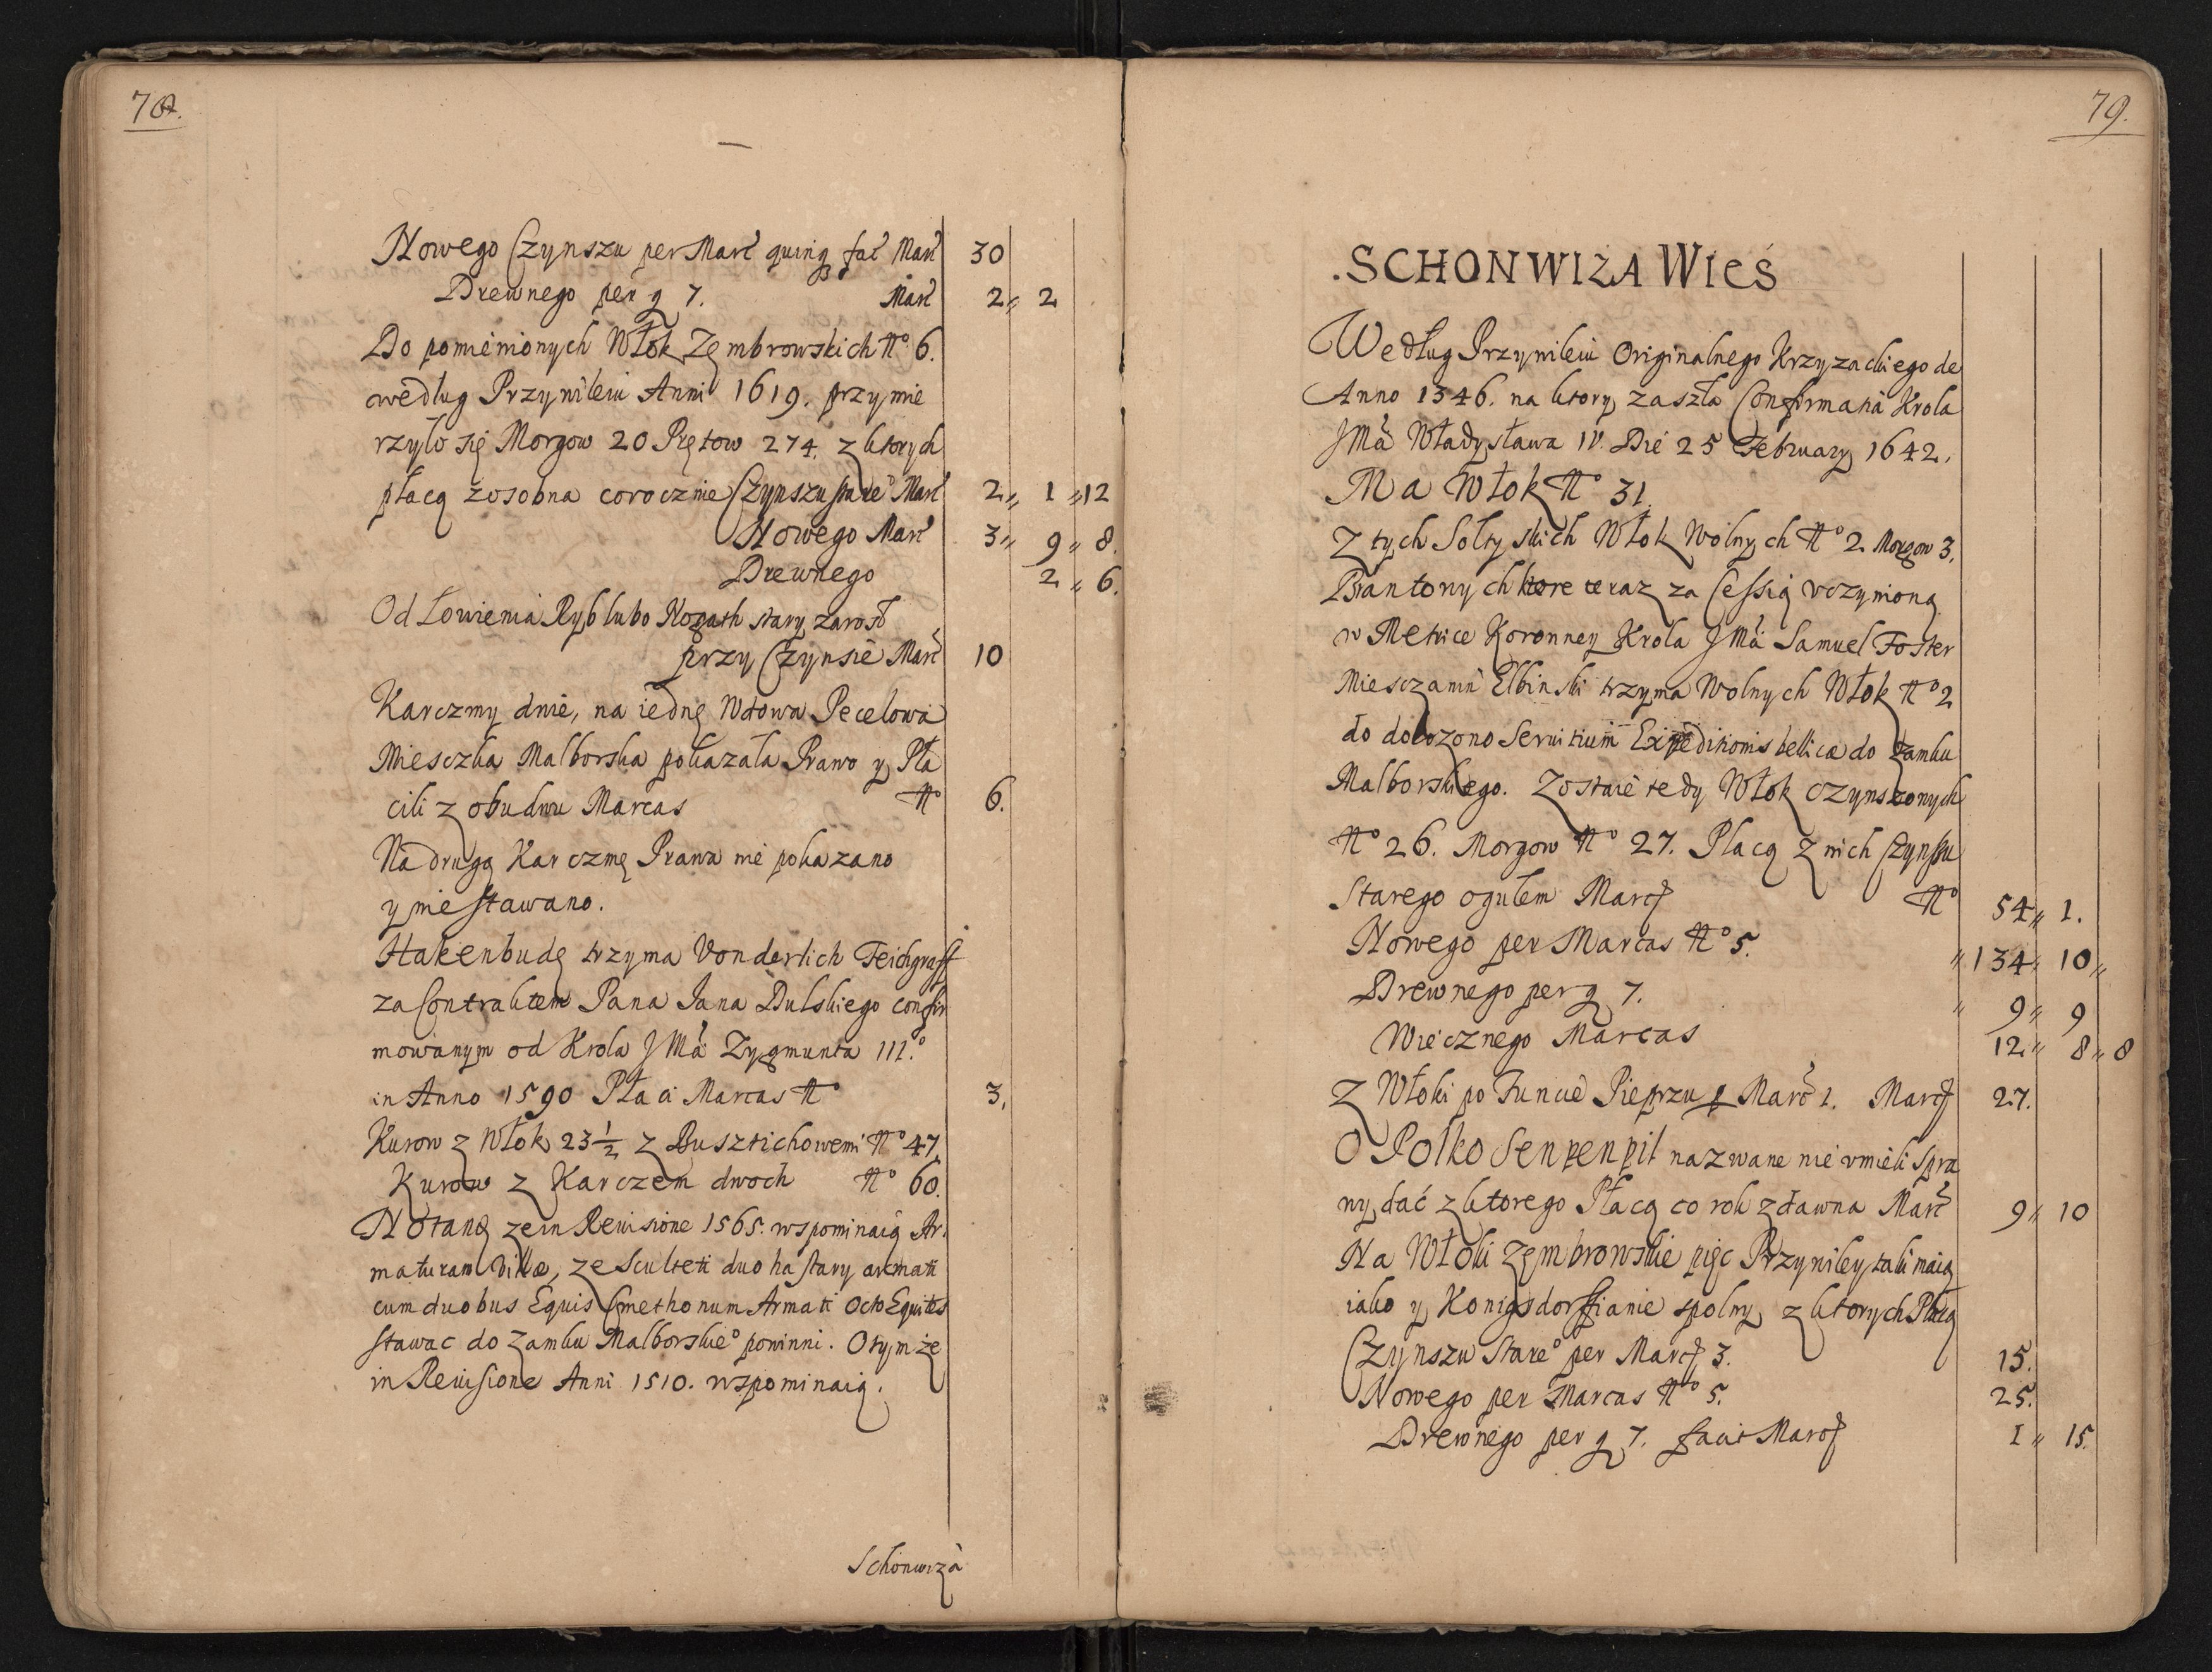 78.
Nowego Czynszu per Marc quinq fac Marc 30
Drewnego per g 7. Marc 2 „ 2
Do pomienionych Włok Zembrowskich No 6.
według Przywileiu Anni 1619. przymie
rzyło się Morgow 20 Prętow 274. z ktorych
płacą zosobna corocznie Czynszu stareo Marc 2 „ 1 „ 12
Nowego Marc 3 „ 9 „ 8.
Drewnego 2 „ 6.
Od Łowienia Ryb lubo Nogath stary zarosł
przy Czynsie Marc 10
Karczmy dwie, na iednę Wdowa Pecelowa
Miesczka Malborska pokazała Prawo y Pła
cili z obudwu Marcas No 6.
Na drugą Karczmę Prawa nie pokazano
y nie stawano.
Hakenbudę trzyma Vonderlich Teichgraff
za Contraktem Pana Jana Dulskiego confir
mowanym od Krola J Mci Zygmunta III.o
in Anno 1590 Płaci Marcas No 3.
Kurow z Włok 23 1/2 z Busztichowemi No 47.
Kurow z Karczem dwoch No 60.
Notanq ze in Revisione 1565. wspominaią Ar.
maturam Villæ, ze Sculteti duo hastary armati
cum duobus Equis Cmethonum Armati Octo Equites
stawac do Zamku Malborskieo powinni. O tym że
in Revisione Anni 1510. wspominaią.
Schonwiza
79.
SCHONWIZA WIEŚ
Według Przywileiu Originalnego Krzyzackiego de
Anno 1346. na ktory zaszła Confirmatia Krola
J Mci Władysława IV. Die 25 February 1642.
Ma Włok No 31.
Z tych Sołtyskich Włok Wolnych No 2. Morgow 3.
Brantowych ktore teraz za Cessią vczynioną
w Metrice Koronney Krola J Mci Samuel Foster
Miesczanin Elbinski trzyma Wolnych Włok No 2
do dołozono Servitium Expeditionis bellicæ do Zamku
Malborskiego. Zostaie tedy Włok czynszowych
No 26. Morgow No 27. Płacą z nich Czynszu
Starego ogułem Marc No 54 „ 1.
Nowego per Marcas No 5. „ 134 „ 10 „
Drewnego per g 7. „ 9 „ 9
Wiecznego Marcas 12 „ 8 „ 8
Z Włoki po Funcie Pieprzu p Marc 1. Marc 27.
O Polko Senpenpil nazwane nie vmieli spra
wy dać z ktorego Płacą co rok zdawna Marc 9 „ 10
Na Włoki Zembrowskie pięc Przywiley taki maią
iako y Konigsdorffianie spolny z ktorych Płacą
Czynszu Stareo per Marc 3. 15.
Nowego per Marcas No 5. 25.
Drewnego per g 7. facit Marc 1 „ 15.